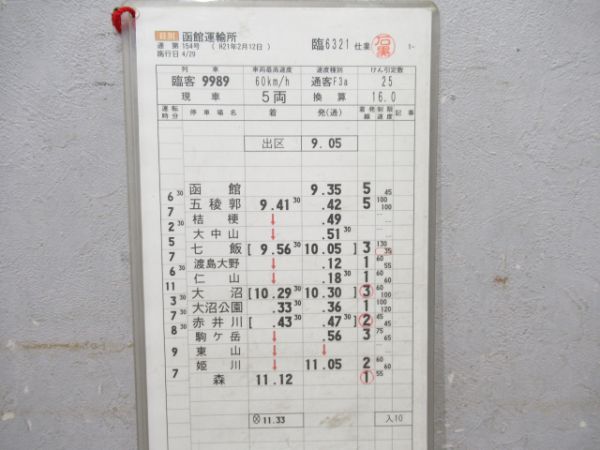 函館運輸所
達 第 154号 ( H21年2月12日 )
施行日 4/29
臨6321 仕業
列 車 車両最高速度 速度種別 けん引定数
臨客 9989 60km/h 通客F3a 25
現 車 5両 換 算 16.0
運転時分 停 車 場 名 着 発(通) 着発線 制限速度 記 事
出区 9.05
函 館 9.35 5 45
6 30
五稜郭 9.41 30 .42 5 100 100
7
桔 梗 ↓ .49
2 30
大中山 ↓ .51 30
5
七 飯 [ 9.56 30 10.05 ] 3 130 35
7
渡島大野 ↓ .12 1 60 55
6 30
仁 山 ↓ .18 30 1 60 60
11
大 沼 [ 10.29 30 10.30 ] 3 60 100
3 30
大沼公園 .33 30 .36 1 100 120
7
赤井川 [ .43 30 .47 30 ] 2 45 45
8 30
駒ケ岳 ↓ .56 3 75 65
東 山 ↓ ↓
9
姫 川 ↓ 11.05 2 60 60
7
森 11.12 1 55
11.33 入10